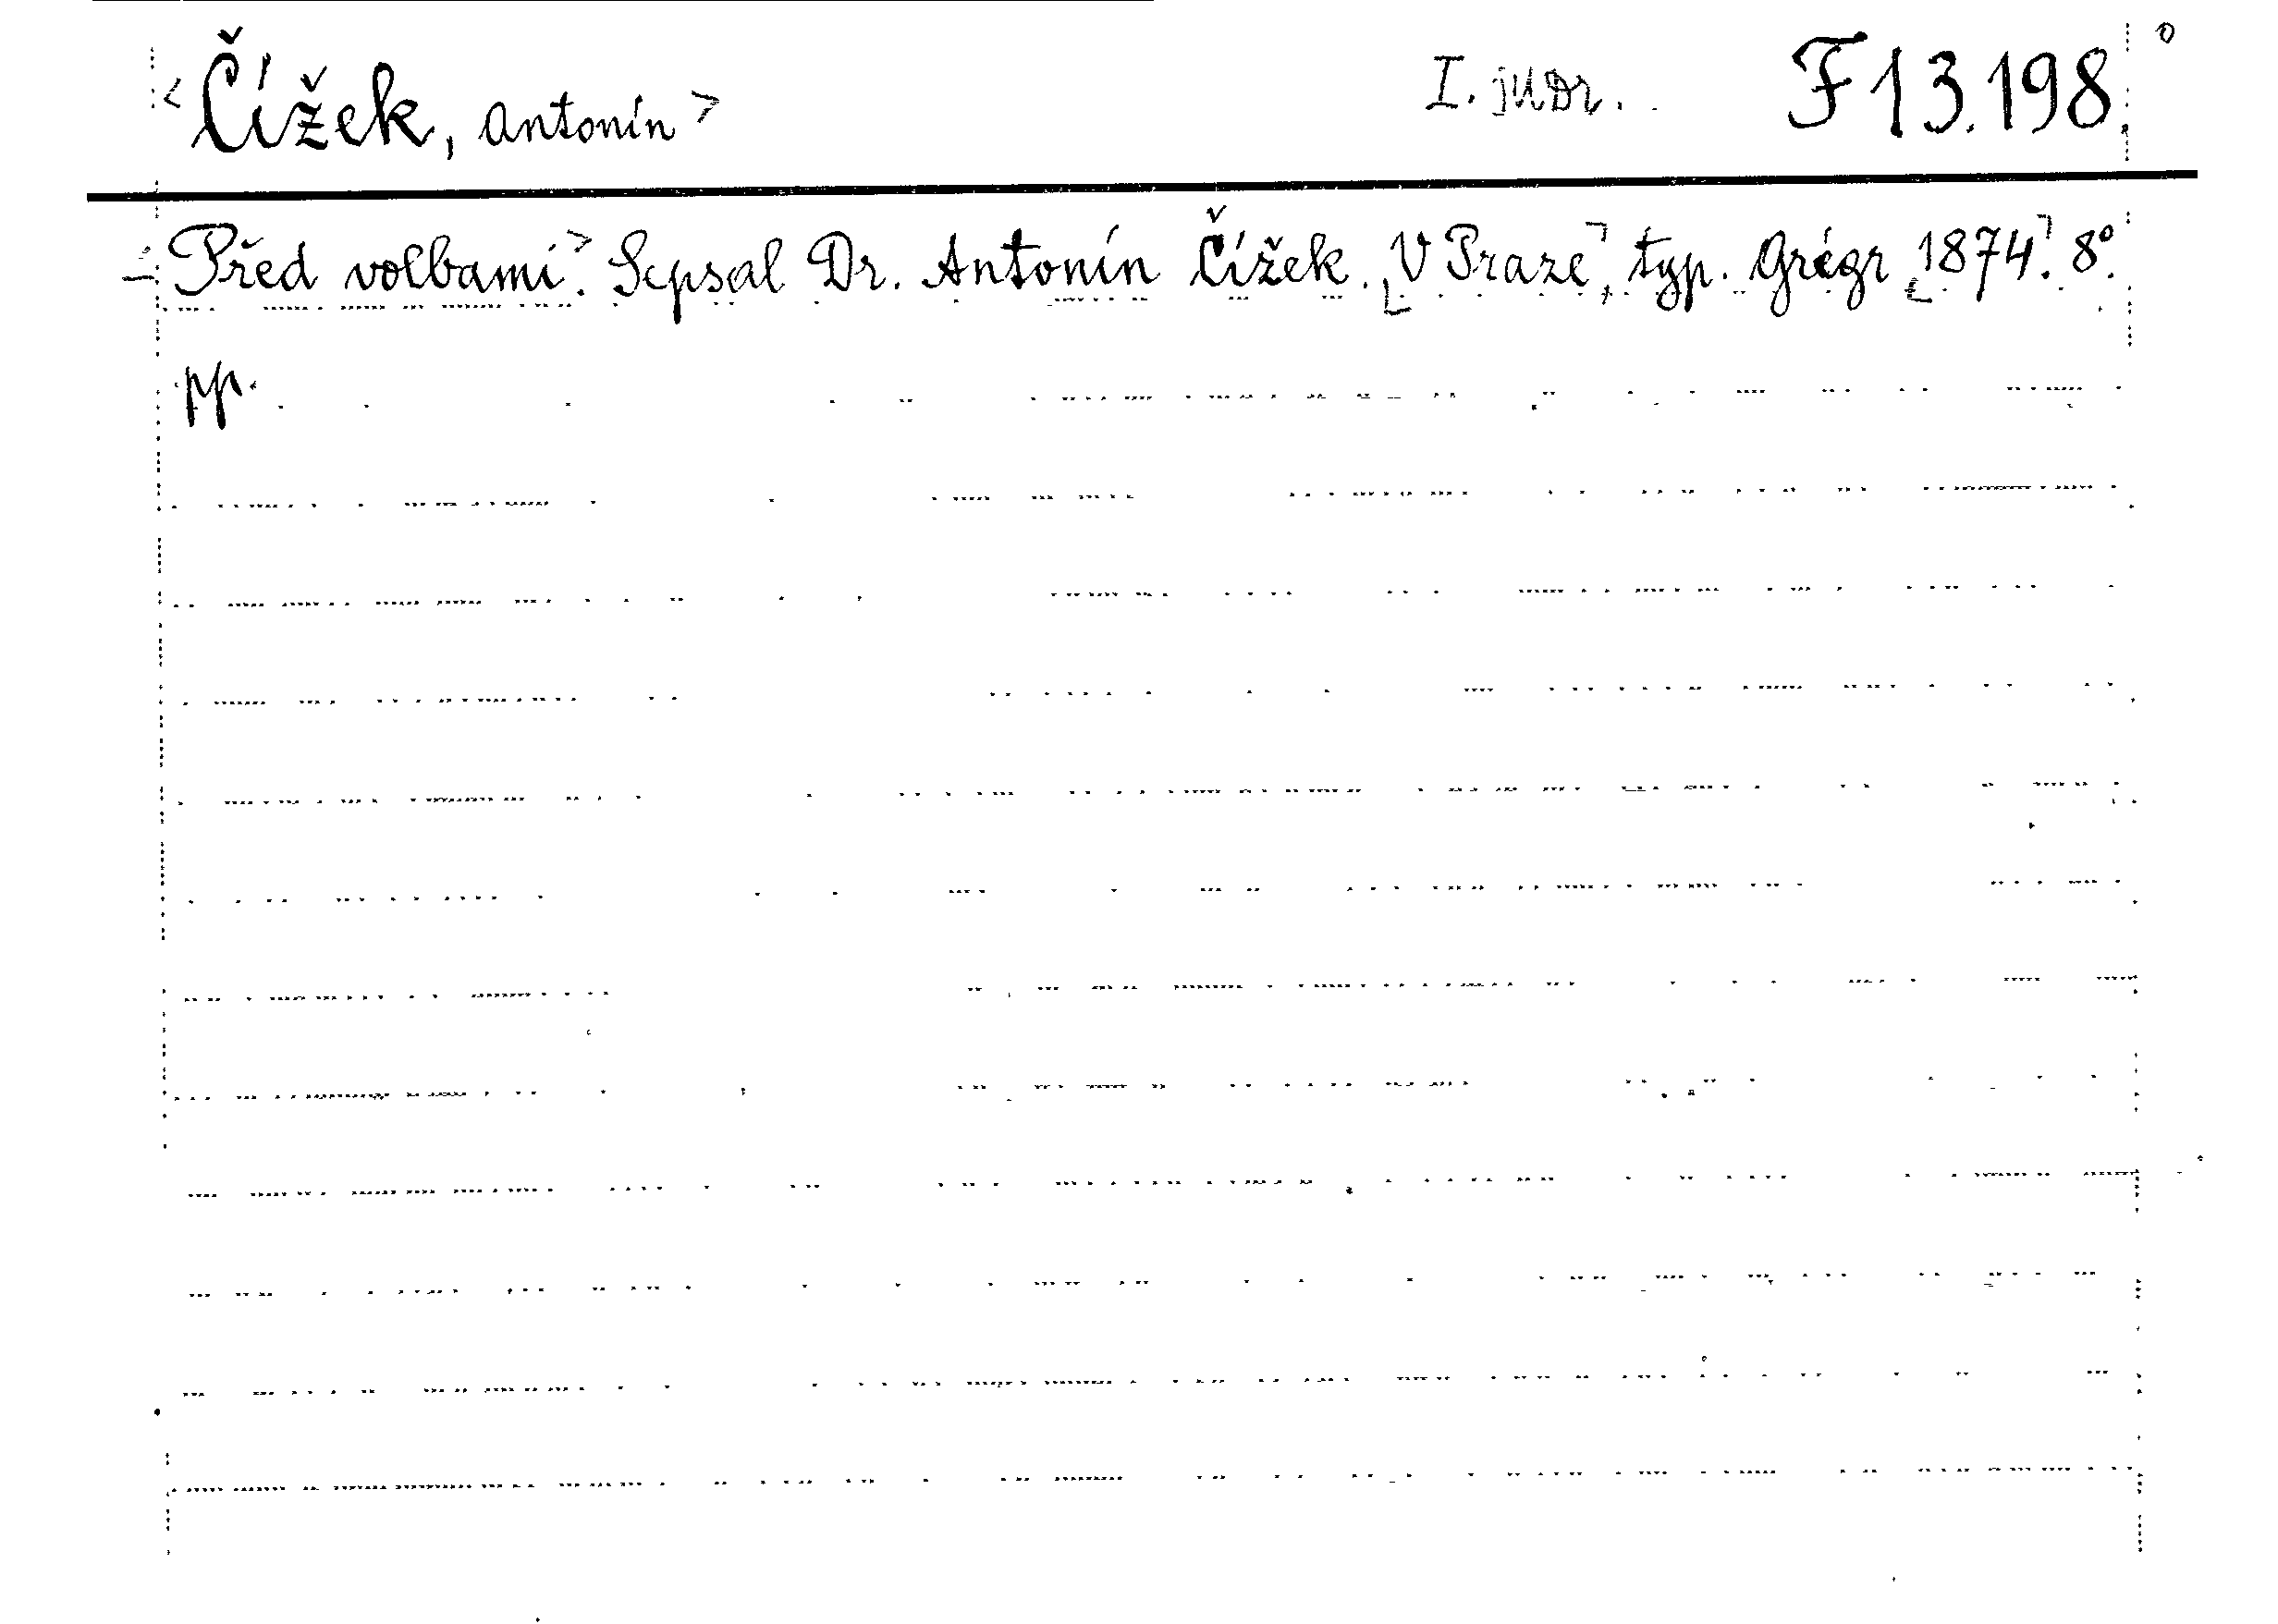 <Čížek, Antonín> I. judr. F 13.198.
Před volbami. Sepsal Dr. Antonín Čížek. V Praze, typ. Grégr 1874. 8°.
pp.